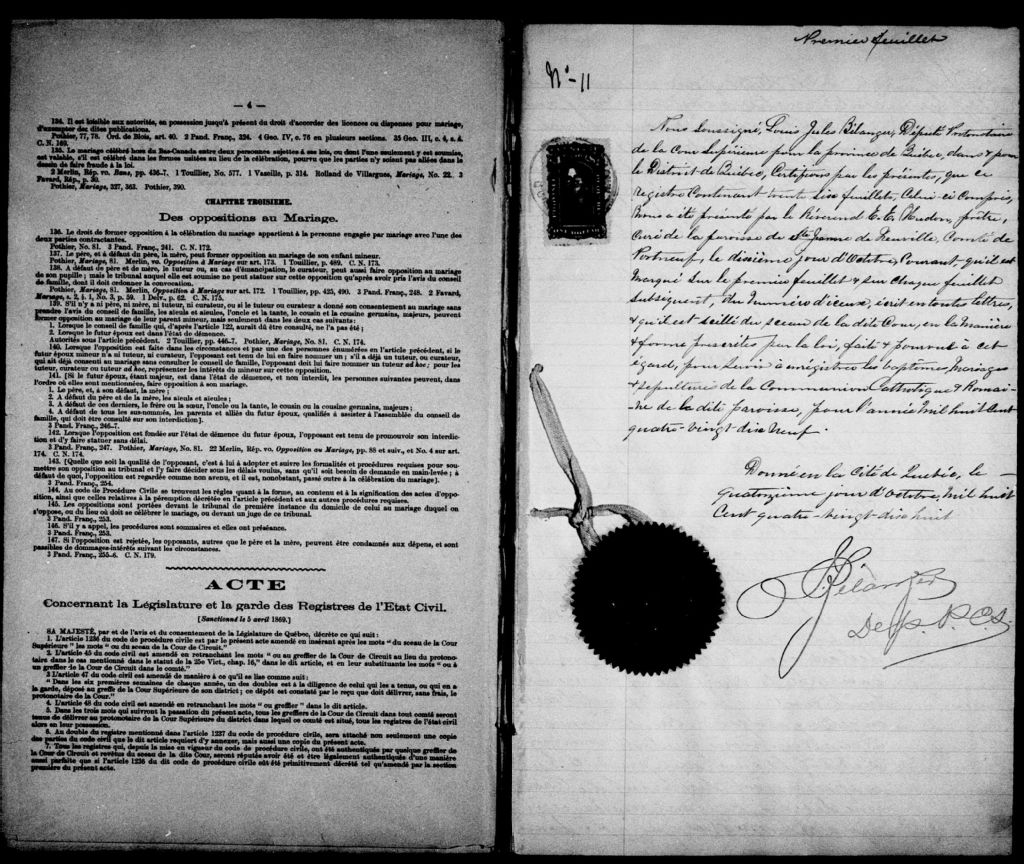 — 4 —
134. Il est loisible aux autorités, en possession jusqu'à présent du droit d'accorder des licences ou dispenses pour mariage,
d'exempter des dites publications.
Pothier, 77, 78. Ord. de Blois, art. 40. 2 Pand. Franç., 324. 4 Geo. IV, c. 78 en plusieurs sections. 35 Geo. III, c. 4, s. 4.
C. N. 169.
135. Le mariage célébré hors du Bas-Canada entre deux personnes sujettes à ses lois, ou dont l'une seulement y est soumise,
est valable, s'il est célébré dans les formes usitées au lieu de la célébration, pourvu que les parties n'y soient pas allées dans le
dessein de faire fraude à la loi.
2 Merlin, Rép. vo. Bans, pp. 436-7. 1 Touillier, No. 577. 1 Vazeille, p. 314. Rolland de Villargues, Mariage, No. 22. 3
Favard, Rép., p. 30.
Pothier, Mariage, 327, 363. Pothier, 390.
CHAPITRE TROISIEME.
Des oppositions au Mariage.
136. Le droit de former opposition à la célébration du mariage appartient à la personne engagée par mariage avec l'une des
deux parties contractantes.
Pothier, No. 81. 3 Pand. Franç., 241. C. N. 172.
137. Le père, et à défaut du père, la mère, peut former opposition au mariage de son enfant mineur.
Pothier, Mariage, 81. Merlin, vo. Opposition à Mariage sur art. 173. 1 Touillier, p. 489. C. N. 173.
138. A défaut de père et de mère, le tuteur ou, au cas d'émancipation, le curateur, peut aussi faire opposition au mariage
de son pupille; mais le tribunal auquel elle est soumise ne peut statuer sur cette opposition qu'après avoir pris l'avis du conseil de
famille, dont il doit ordonner la convocation.
Pothier, Mariage, 81. Merlin, Opposition à Mariage sur art. 172. 1 Touillier, pp. 425, 490. 3 Pand. Franç., 248. 2 Favard,
Mariage, s. 2, § 1, No. 3, p. 59. 1 Delv., p. 62. C. N. 175.
139. S'il n'y a ni père, ni mère, ni tuteur, ni curateur, ou si le tuteur ou curateur a donné son consentement au mariage sans
prendre l'avis du conseil de famille, les aïeuls et aïeules, l'oncle et la tante, le cousin et la cousine germains, majeurs, peuvent
former opposition au mariage de leur parent mineur, mais seulement dans les deux cas suivants:
1. Lorsque le conseil de famille qui, d'après l'article 122, aurait dû être consulté, ne l'a pas été;
2. Lorsque le futur époux est dans l'état de démence.
Autorités sous l'article précédent. 2 Touillier, pp. 446-7. Pothier, Mariage, No. 81. C. N. 174.
140. Lorsque l'opposition est faite dans les circonstances et par une des personnes énumérées en l'article précédent, si le
futur époux mineur n'a ni tuteur, ni curateur, l'opposant est tenu de lui en faire nommer un; s'il a déjà un tuteur, ou curateur,
qui ait déjà consenti au mariage sans consulter le conseil de famille, l'opposant doit lui faire nommer un tuteur ad hoc; pour les
tuteur, curateur ou tuteur ad hoc, représenter les intérêts du mineur sur cette opposition.
141. [Si le futur époux, étant majeur, est dans l'état de démence, et non interdit, les personnes suivantes peuvent, dans
l'ordre où elles sont mentionnées, faire opposition à son mariage.
1. Le père, et, à son défaut, la mère;
2. A défaut du père et de la mère, les aïeuls et aïeules;
3. A défaut de ces derniers, le frère ou la sœur, l'oncle ou la tante, le cousin ou la cousine germains, majeurs;
4. A défaut de tous les sus-nommés, les parents et alliés du futur époux, qualifiés à assister à l'assemblée du conseil de
famille, qui doit être consulté sur son interdiction].
3 Pand. Franç., 246-7.
142. Lorsque l'opposition est fondée sur l'état de démence du futur époux, l'opposant est tenu de promouvoir son interdic-
tion et d'y faire statuer sans délai.
3 Pand. Franç., 247. Pothier, Mariage, No. 81. 22 Merlin, Rép. vo. Opposition au Mariage, pp. 88 et suiv., et No. 4 sur art.
174. C. N. 174.
143. [Quelle que soit la qualité de l'opposant, c'est à lui à adopter et suivre les formalités et procédures requises pour sou-
mettre son opposition au tribunal et l'y faire décider sous les délais voulus, sans qu'il soit besoin de demande en main-levée; à
défaut de quoi, l'opposition est regardée comme non avenu, et il est, nonobstant, passé outre à la célébration du mariage].
3 Pand. Franç., 254.
144. Au code de Procédure Civile se trouvent les règles quant à la forme, au contenu et à la signification des actes d'oppo-
sition, ainsi que celles relatives à la péremption décrétée en l'article précédent et aux autres procédures requises.
145. Les oppositions sont portées devant le tribunal de première instance du domicile de celui au mariage duquel on
s'oppose, ou du lieu où doit se célébrer le mariage, ou devant un juge de ce tribunal.
3 Pand. Franç., 253.
146. S'il y a appel, les procédures sont sommaires et elles ont préséance.
3 Pand. Franç., 253.
147. Si l'opposition est rejetée, les opposants, autres que le père et la mère, peuvent être condamnés aux dépens, et sont
passibles de dommages-intérêts suivant les circonstances.
3 Pand. Franç., 255-6. C. N. 179.
ACTE
Concernant la Législature et la garde des Registres de l'Etat Civil.
[Sanctionné le 5 avril 1869.]
SA MAJESTÉ, par et de l'avis et du consentement de la Législature de Québec, décrète ce qui suit:
1. L'article 1236 du code de procédure civile est par le présent acte amendé en insérant après les mots "du sceau de la Cour
Supérieure" les mots "ou du sceau de la Cour de Circuit."
2. L'article 45 du code civil est amendé en retranchant les mots "ou au greffier de la Cour de Circuit au lieu du protono-
taire dans le cas mentionné dans le statut de la 25e Vict., chap. 16," dans le dit article, et en leur substituant les mots "ou à
un greffier de la Cour de Circuit dans le comté."
3 L'article 47 du code civil est amendé de manière à ce qu'il se lise comme suit:
"Dans les six premières semaines de chaque année, un des doubles est à la diligence de celui qui les a tenus, ou qui en a
la garde, déposé au greffe de la Cour Supérieure de son district; ce dépôt est constaté par le reçu que doit délivrer, sans frais, le
protonotaire de la Cour."
4. L'article 48 du code civil est amendé en retranchant les mots "ou greffier" dans le dit article.
5. Dans les trois mois qui suivront la passation du présent acte, tous les greffiers de la Cour de Circuit dans tout comté seront
tenus de délivrer au protonotaire de la Cour Supérieure du district dans lequel ce comté est situé, tous les registres de l'état civil
alors en leur possession.
6. Au double du registre mentionné dans l'article 1237 du code de procédure civile, sera attaché non seulement une copie
des parties du code civil que le dit article requiert d'y annexer, mais aussi une copie du présent acte.
7. Tous les registres qui, depuis la mise en vigueur du code de procédure civile, ont été authentiqués par quelque greffier de
la Cour de Circuit et revêtus du sceau de la dite Cour, seront réputés avoir été et être légalement authentiqués d'une manière
aussi parfaite que si l'article 1236 du dit code de procédure civile eût été primitivement décrété tel qu'amendé par la section
première du présent acte.
Premier feuillet
No - 11
Nous soussigné, Louis Jules Bélanger, Député Protonotaire
de la Cour Supérieure pour la province de Québec, dans & pour
le District de Québec, Certifions par les présentes, que ce
registre Contenant trente six feuillets, Celui-ci Compris,
Nous a été présenté par le Révérend E. E. Hudon, prêtre,
Curé de la paroisse de Ste Jeanne de Neuville, Comté de
Portneuf, le dixième jour d'Octobre, Courant, qu'il est
Marqué sur le premier feuillet & sur Chaque feuillet
subséquent, du Numéro d'iceux, écrit en toutes lettres,
& qu'il est scellé du sceau de la dite Cour, en la Manière
& forme prescrites par la loi, fait & pourvu à cet
égard, pour servir à enregistrer les baptêmes, Mariages
& sépultures de la Communion Catholique & Romai-
-ne de la dite paroisse, pour l'année Mil huit Cent
quatre-vingt dix Neuf.
Donné en la Cité de Québec, le
quatorzième jour d'Octobre, Mil huit
Cent quatre-vingt-dix huit
Bélanger
Dep. P.C.S.